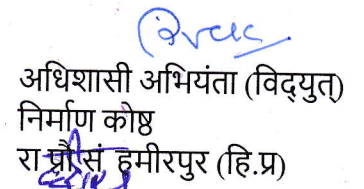 अधिशासी अभियंता (विद्युत्)
निर्माण कोष्ठ
रा प्रौ सं हमीरपुर (हि.प्र)